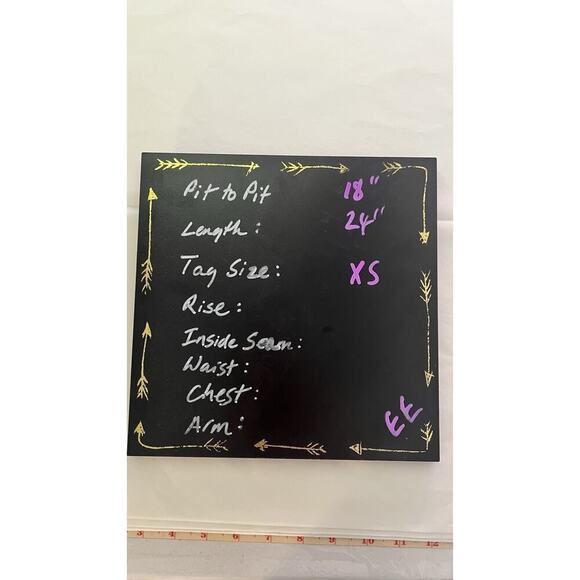 Pit to Pit 18"
Length: 24"
Tag Size: XS
Rise:
Inside Seam:
Waist:
Chest:
Arm:
EE
3 4 5 6 7 8 9 10 11 12